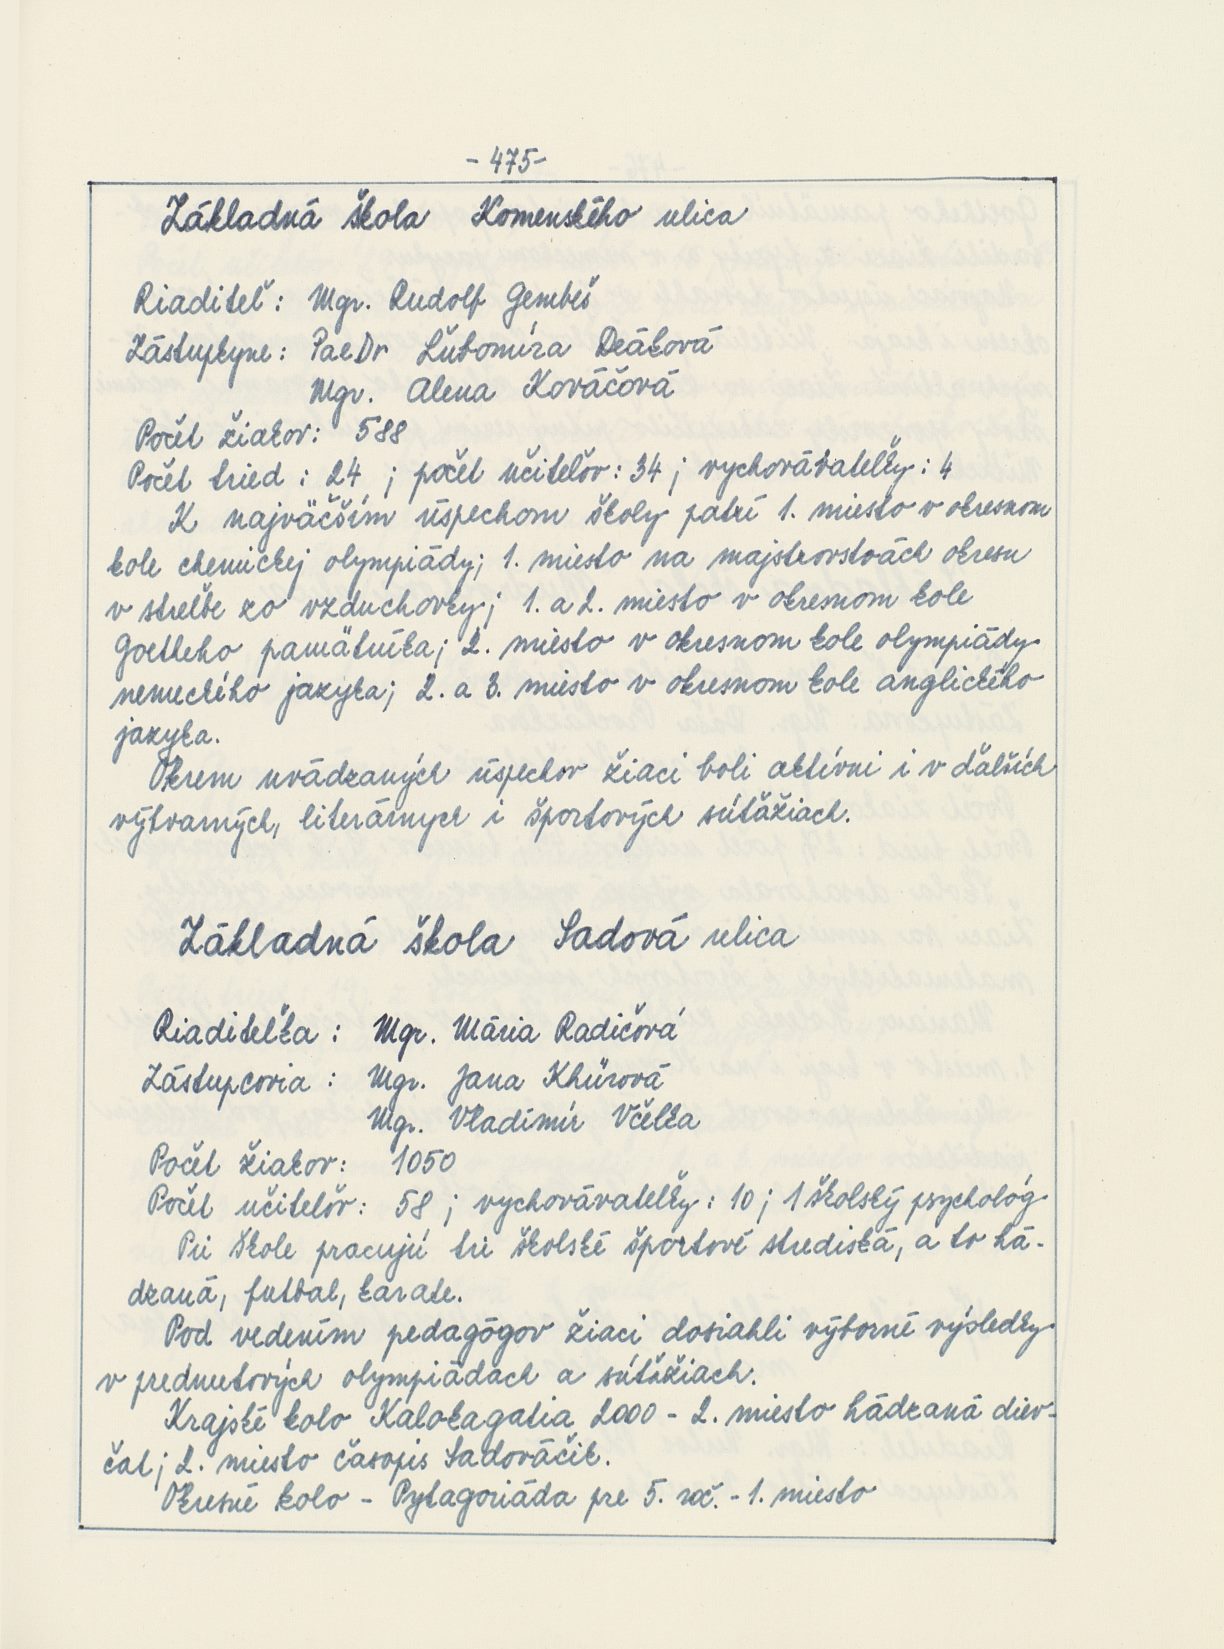 - 475 -
Základná škola Komenského ulica
Riaditeľ: Mgr. Rudolf Gembeš
Zástupkyne: PaeDr Ľubomíra Deáková
Mgr. Alena Kováčová
Počet žiakov: 588
Počet tried : 24 ; počet učiteľov: 34 ; vychovávateľky: 4
K najväčším úspechom školy patrí 1. miesto v okresnom
kole chemickej olympiády; 1. miesto na majstrovstvách okresu
v streľbe zo vzduchovky; 1. a 2. miesto v okresnom kole
Goetheho pamätníka; 2. miesto v okresnom kole olympiády
nemeckého jazyka; 2. a 3. miesto v okresnom kole anglického
jazyka.
Okrem uvádzaných úspechov žiaci boli aktívni i v ďalších
výtvarných, literárnych i športových súťažiach.
Základná škola Sadová ulica
Riaditeľka : Mgr. Mária Radičová
Zástupcovia : Mgr. Jana Khürová
Mgr. Vladimír Včelka
Počet žiakov: 1050
Počet učiteľov: 58 ; vychovávateľky: 10 ; 1 školský psychológ
Pri škole pracujú tri školské športové strediská, a to há-
dzaná, futbal, karate.
Pod vedením pedagógov žiaci dosiahli výborné výsledky
v predmetových olympiádach a súťažiach.
Krajské kolo Kalokagatia 2000 - 2. miesto hádzaná diev-
čat; 2. miesto časopis Sadováčik.
Okresné kolo - Pytagoriáda pre 5. roč. - 1. miesto